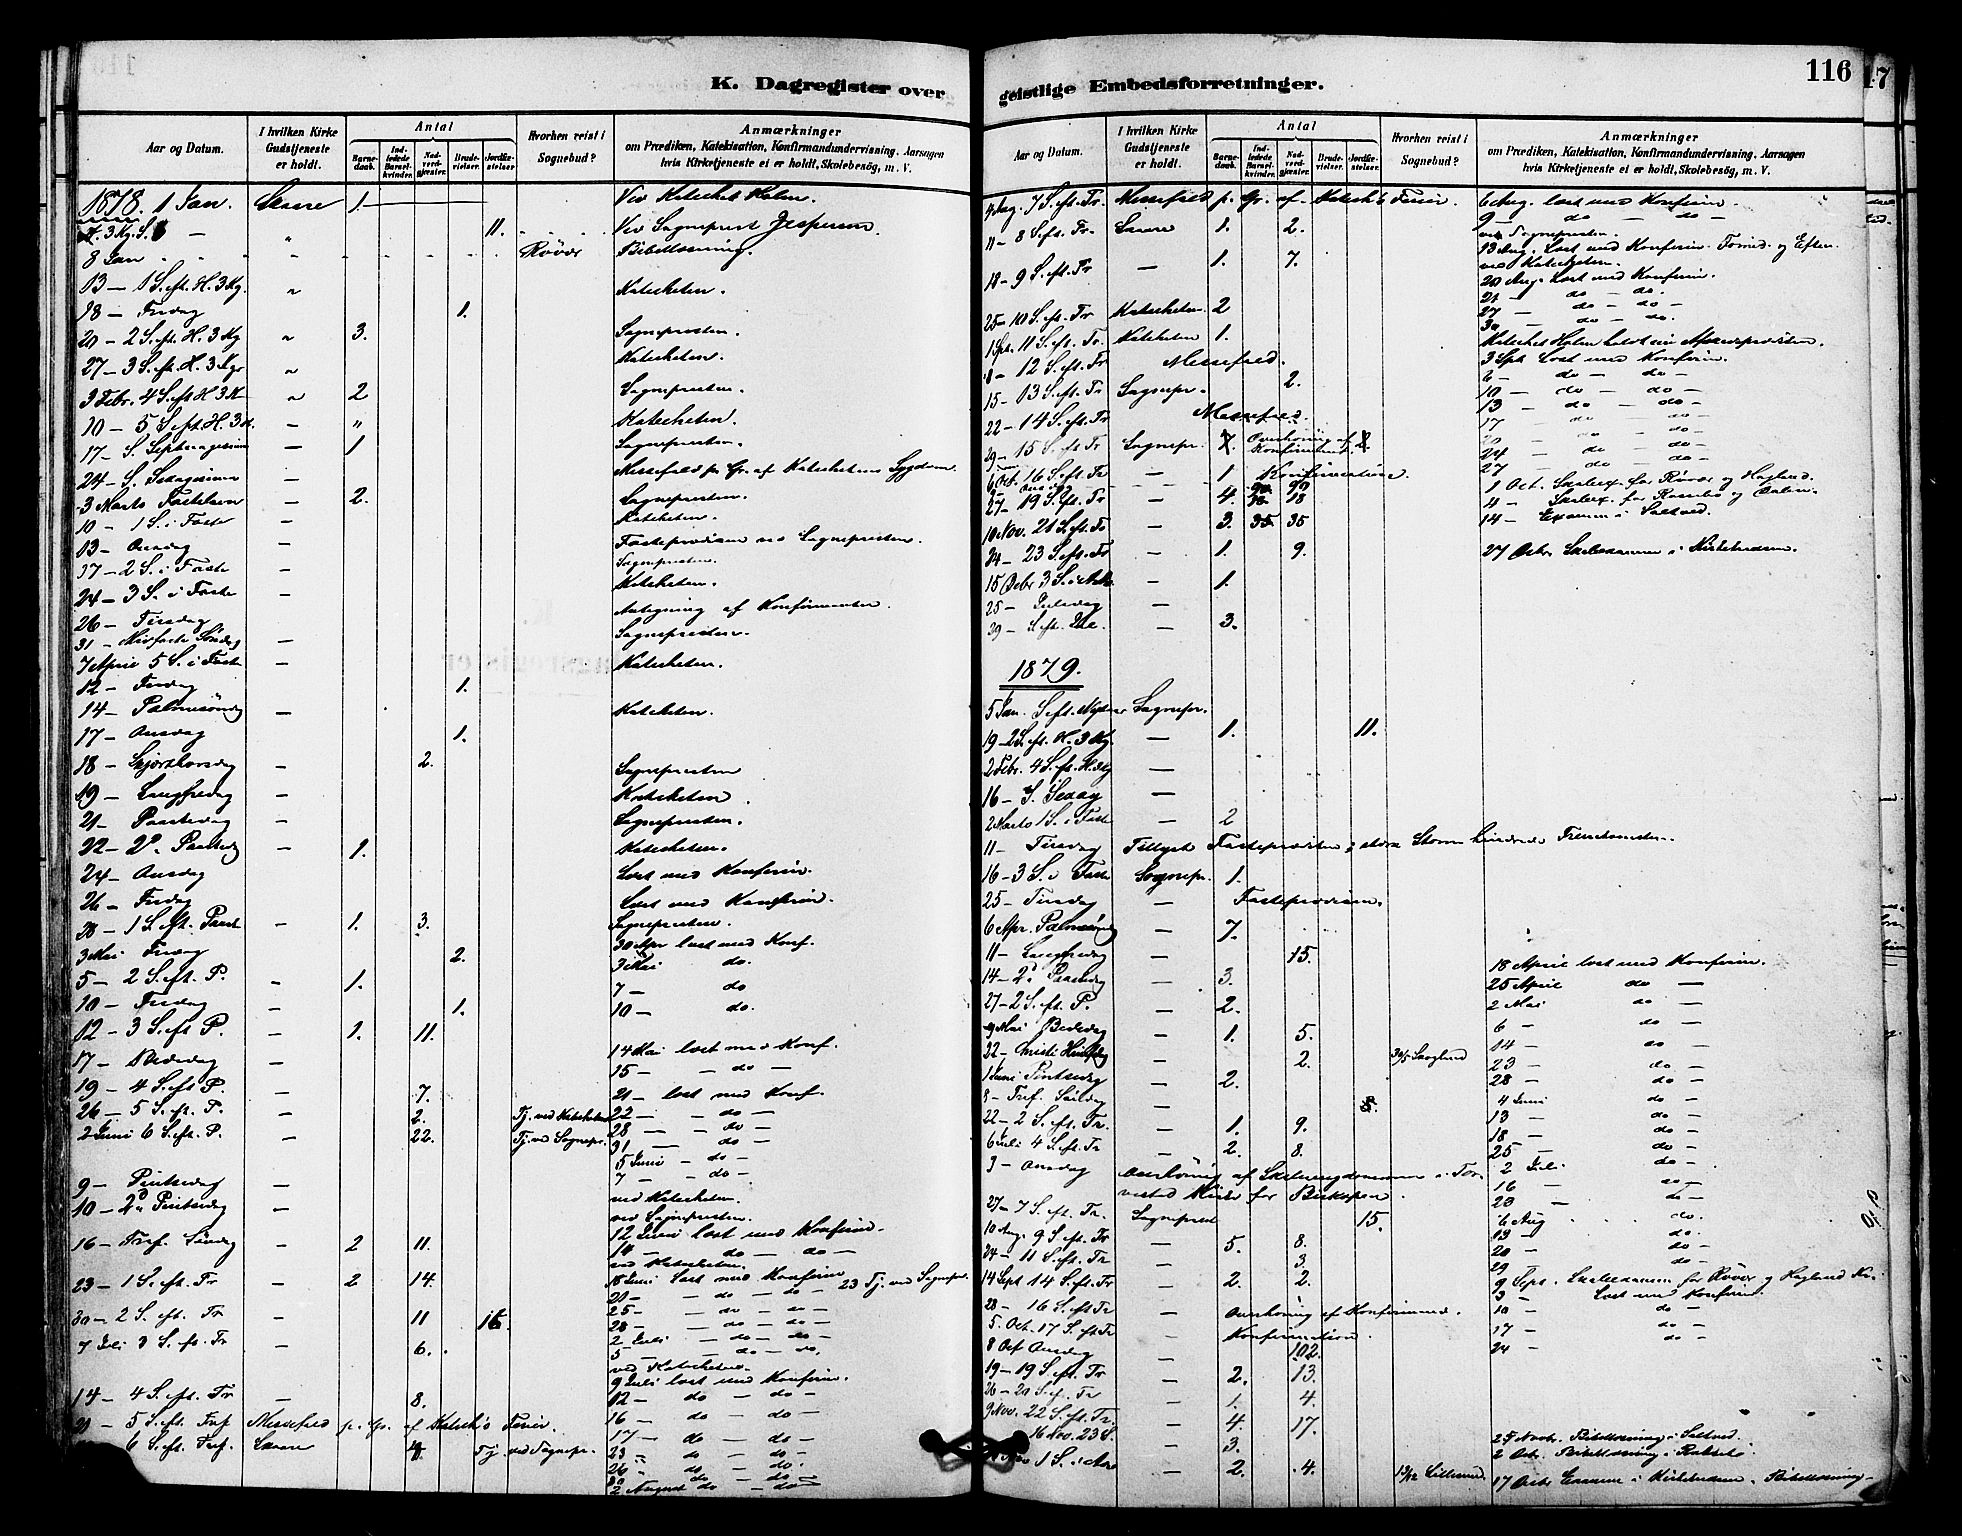 K. Dagregister over
Aar og Datum.
I hvilken Kirke Gudstjeneste er holdt.
Antal
Barnedaab.
Indledede Barselkvinder.
Nadverdgjæster.
Brudevielser.
Jordfæstelser.
Hvorhen reist i Sognebud?
Anmærkninger
om Prædiken, Katekisation, Konfirmandundervisning, Aarsagen
hvis Kirketjeneste ei er holdt, Skolebesøg, m. V.
1878. 1 Jan. 1. Ved Katechet Holm.
H. 3 Kg. S. 6 — 11. Ved Sogneprest Jespersen.
8 Jan Røvær Bibellæsning.
13 — 1 S. eft. H. 3 Kg. Katecheten.
18 — Fredag 1.
20 — 2 S. eft. H. 3 Kg 3. Sognepresten.
27 — 3 S. eft. H. 3 Kgr Katecheten.
3 Febr. 4 S. eft H 3 K 2 Sognepresten.
10 — 5 S eft. H. 3 K. — Katecheten.
17 — S. Septuagesima — 1 Sognepresten.
24 — S. Sexagesima — Messefald p. Gr. af Katechetens Sygdom.
3 Marts Fastelavn — 2. Sognepresten.
10 — 1 S. i Faste — Katecheten.
13 — Onsdag — Fasteprædiken ved Sognepresten.
17 — 2 S. i Faste — Sognepresten.
24 — 3 S. i Faste — Katecheten.
26 — Tirsdag Antegning af Konfirmanter.
31 — Midfaste Søndag — Sognepresten.
7 April 5 S. i Faste — Katecheten.
12 — Fredag 1.
14 — Palmesøndag — Katecheten.
17 — Onsdag 1.
18 — Skjærthorsdag — 2. Sognepresten
19 — Langfredag — Katecheten.
21 — Paaskedag — Sognepresten.
22 — 2d Paaskedag — 1. Katecheten.
24 — Onsdag Læst med Konfirm.
26 — Fredag Læst med Konfirm.
28 — 1 S. eft. Paaske — 1. 3. Sognepresten.
30 Apr læst med Konf.
3 Mai Fredag 2. 3 Mai do.
5 — 2 S. eft. P. — 1. 7 — do
10 — Fredag 1. 10 — do.
12 — 3 S. eft P. — 1. 11. 14 Mai læst med Konf.
17 — Bededag — 15 — — do —
19 — 4 S. eft P. — 7. 21 — læst med Konf.
26 — 5 S. eft. P. — 2. Tj. ved Katecheten 22 — — do —
28 — — do —
2 Juni 6 S. eft. P. — 22. Tj. ved Sognepr. 31 — — do —
5 Juni — do —
7 — — do —
9 — Pintsedag — ved Katecheten.
10 — 2d Pintsedag — ved Sognepresten.
12 Juni læst med Konfirm.
16 — Tref. Søndag — 2 11. 14 — do — do —
ved Katecheten.
23 — 1 S. eft. Tr — 2 14. 18 Juni Læst med Konfirm 23 Tj. ved Sognepr.
21 — — do — do —
25 — — do — do —
30 — 2 S. eft. Tr — 11 28 — — do — do —
2 Juli — do — do —
7 Juli 3 S. eft. Tr — 6. 5 — — do — do.
ved Katecheten.
9 Juli læst med Konfirm.
14 — 4 S. eft. Tr — 8. 12 — do — do —
21 — 5 S. eft. Tref Messefald p. Gr. af Katech.s Ferier. 16 — do — do —
17 — do — do —
6 S. eft. Tref. Tj. ved Sognepr. 23 — do — do —
26 do — do.
2 August do — do —
geistlige Embedsforretninger.
116
17
Aar og Datum.
I hvilken Kirke Gudstjeneste er holdt.
Antal
Barnedaab.
Indledede Barselkvinder.
Nadverdgjæster.
Brudevielser.
Jordfæstelser.
Hvorhen reist i Sognebud?
Anmærkninger
om Prædiken, Katekisation, Konfirmandundervisning, Aarsagen
hvis Kirketjeneste ei er holdt, Skolebesøg, m. V.
4 Aug. 7 S. eft. Tr. Messefald p. Gr. af Katech.s Ferier 6 Aug. læst med Konfirm.
9 — do — do —
11 — 8 S. eft. Tr. 1. 2. ved Sognepresten.
13 Aug. Læst med Konfirm. Formid. og Efterm.
ved Katecheten.
18 — 9 S. eft. Tr — 1. 7. 20 Aug. Læst med Konfirm.
21 — do — do.
27 — do — do —
25 — 10 S. eft. Tr Katecheten. 2 30 — do — do.
1 Sept. 11 S. eft. Tr. Katecheten 1. Katechet Holm
8 — 12 S. eft. Tr Messefald. 3 Sept Læst med Konfirm.
15 — 13 S. eft. Tr Sognepr. 2. 6 — do — do —
10 — do — do —
22 — 14 S. eft. Tr Messefald. 13 — do — do —
17 — do — do —
29 — 15 S. eft Tr Sognepr. Overhøring af Konfirmant. 20 — do — do
24 — do — do
6 Oct. 16 S. eft. Tr — 1 Konfirmation. 27 — do — do —
90
1 Oct. Skolex. for Røvær og Hagland.
27 — 19 S. eft. Tr — 4. 18
10 Nov. 21 S. eft. Tr — 3. 35 35 14 — Examen i Saltved.
24 — 23 S. eft. Tr — 1. 9. 27 Decbr. Skolexamen i Kirkebudsen.
15 Decbr 3 S. i Adv. — 1.
25 — Juledag —
29 — S. eft. Jul. — 3.
1879.
5 Jan. S eft. Nytaar Sognepr.
19 — 2 S. eft. H. 3 Kg. — 1. 11.
2 Febr. 4 S. eft. H. 3 Kg —
16 — S. Sexag —
2 Marts 1 S. i Faste — 2
11 — Tirsdag Tillyst Fasteprædiken, stærk Storm hindrede Fremkomsten.
16 — 3 S. i Faste Sognepr. 1.
25 — Tirsdag — Fasteprædiken.
6 Apr. Palmesøndag — 7.
11 — Langfredag — 15.
14 — 2d Paaskedag — 3. 18 April læst med Konfirm.
25 April do —
27 — 2 S. eft. P. — 2. 2 Mai do —
9 Mai Bededag — 1. 5. 6 — do —
22 — Kristi Himmelf. — 2. 14 — do —
1 Juni Pintsedag — 2. 23 — do —
28 — do —
8 — Tref. Søndag — 4 Juni do —
22 — 2 S. eft. Tr. — 1. 9. 13 — do —
18 — do —
6 Juli 4 S. eft. Tr — 2. 8. 25 — do —
9 — Onsdag Overhøring af Skoleungdommen i Torvestad Kirke for Biskopen. 2 Juli do —
16 — do —
27 — 7 S. eft. Tr. Sogneprest 15. 23 — do —
6 Aug do.
10 Aug. 9 S. eft. Tr — 5. 8. 13 — do.
24 — 11 S. eft. Tr — 3. 20 — do —
29 do —
14 Sept 14 S. eft. Tr — 2. 2. 9 Sept. Skolexamen for Røvær og Hagland Kr.
3 — Læst med Konfirm.
28 — 16 S. eft Tr — Overhøring af Konfirmand. 10 — do —
5. Oct. 17 S. eft Tr Konfirmation. 17 — do —
8 Oct Onsdag — 102. 24 — do —
19 — 19 S. eft. Tr — 2. 13.
26 — 20 S. eft. Tr — 1. 4.
9 Nov. 22 S. eft. Tr. — 4. 17.
16 Nov. 23 S. — 3. 25 Novbr. Bibellæsning i Saltved.
1 S. i Adv — 2. 4. 2 Decbr. Bibellæsning i
17 Decbr Examen i Kirkebudsen. Bibellæsning